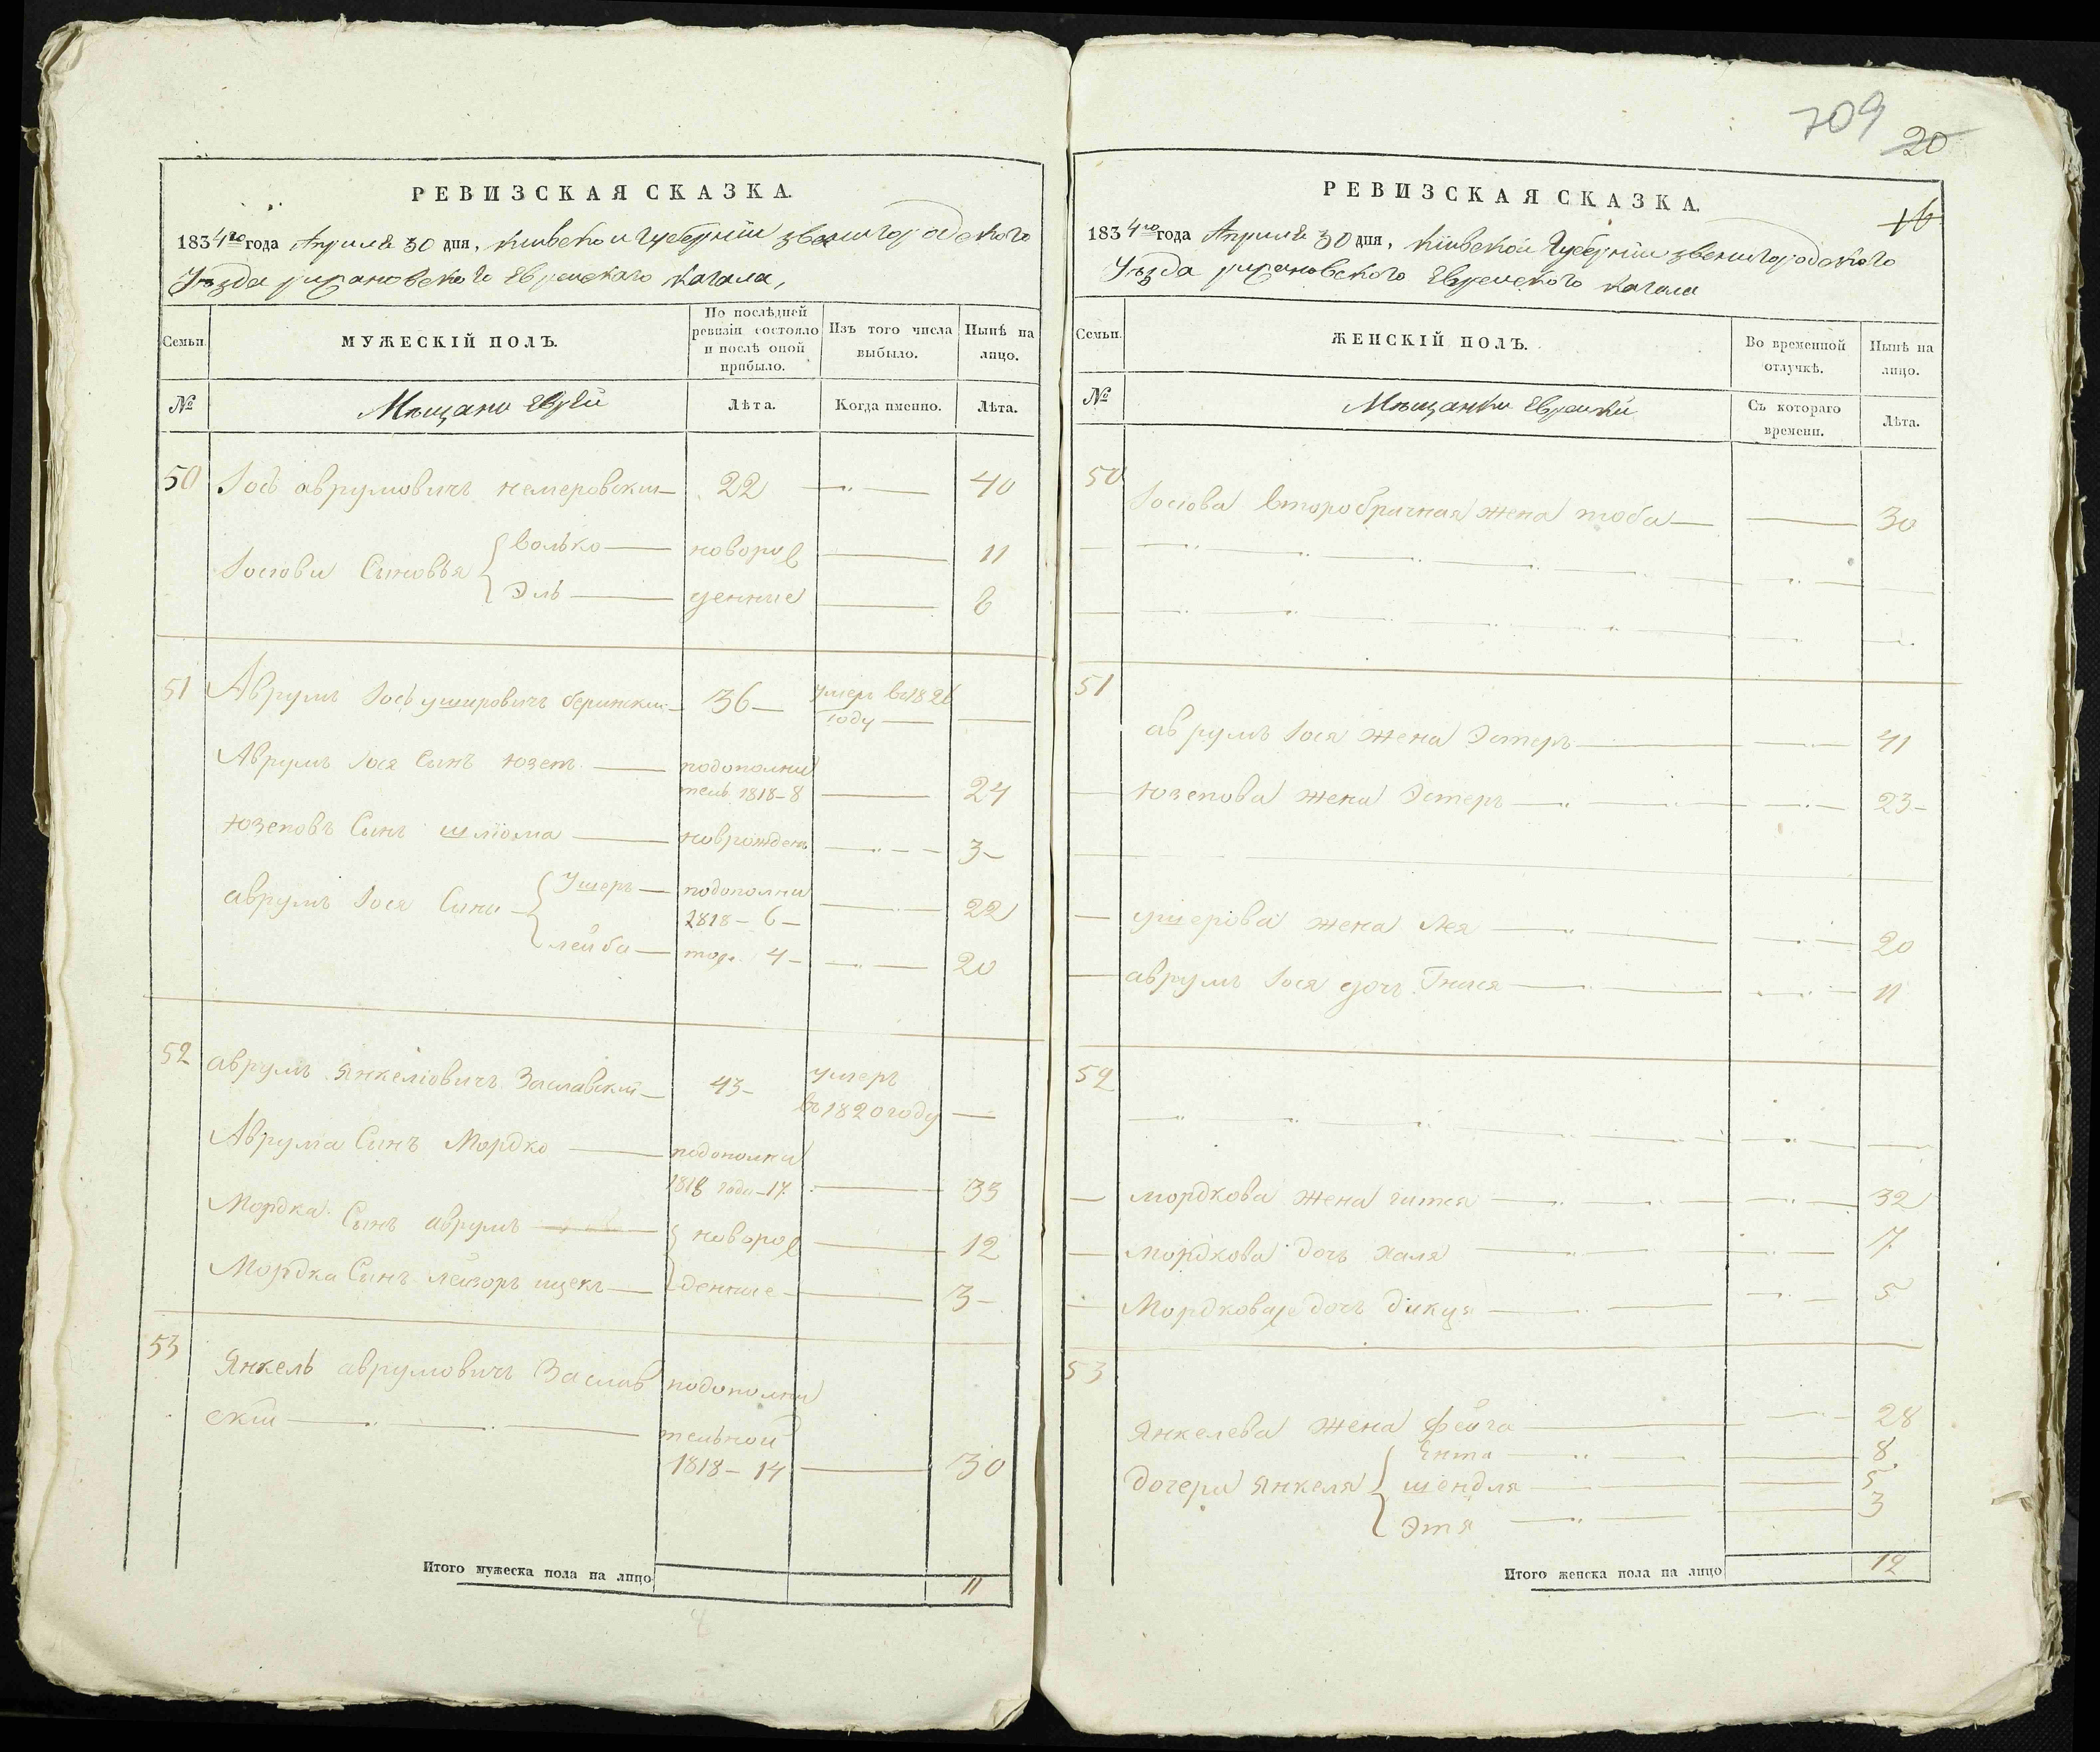 РЕВИЗСКАЯ СКАЗКА.
1834го года Априля 30 дня, Киевской Губернии Звенигородского
Уѣзда рижановского Еврейского Кагала,
Семьи.
МУЖЕСКІЙ ПОЛЪ.
По послѣдней ревизіи состояло и послѣ оной прибыло.
Изъ того числа выбыло.
Нынѣ на лицо.
№
Мѣщане Евреи
Лѣта.
Когда именно.
Лѣта.
50 Іось аврумовичъ немеровскии 22 40
Волько новоро 11
Іосіови Сыновья
Эль денние 8
51 Аврумъ Іось ушировичъ 36 умеръ въ 1826
году
Аврумъ Іося Сынъ юзепъ подополни
тель 1818-8 24
юзеповъ Сынъ шліома новрожденъ 3
Ушеръ подополни
аврумъ Іося Сыни 1818-6 22
лейба 4 20
52 аврумъ Янкеліовичъ Заславскій 43 умеръ
въ 1820 году
Аврума Сынъ Мордко подополни
1818 года-17 33
Мордка Сынъ аврумъ новоро 12
Мордка Сынъ лейзоръ ицекъ денние 3
53
Янкель аврумовичъ Заслав подополни
скій тельной
1818-14 30
Итого мужеска пола на лицо 11
709
20
16
РЕВИЗСКАЯ СКАЗКА.
1834го года Априля 30 дня, Кіивской Губерніи Звенигородского
Уѣзда рижановского Еврейского Кагала
Семьи.
ЖЕНСКІЙ ПОЛЪ.
Во временной отлучкѣ.
Нынѣ на лицо.
№
Мѣщанки Еврейки
Съ котораго времени.
Лѣта.
50
Іосіова второбрачная жена тоба 30
51
аврумъ Іося жена Эстеръ 41
юзепова жена Эстеръ 23
ушерова жена Лея 20
аврумъ Іося дочь 11
52
мордкова жена гитля 32
мордкова дочь Халя 7
Мордкова дочь 5
53
Янкелева жена фейга 28
Ента 8
дочери Янкеля шендля 5
Этя 3
Итого женска пола на лицо 12